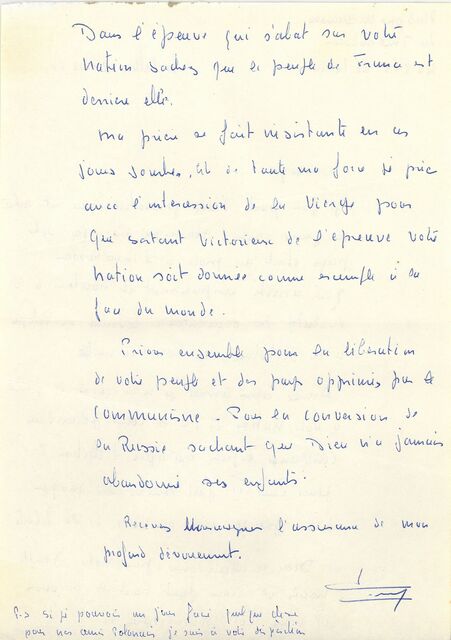 Dans l'épreuve qui s'abat sur votre
nation sachez que le peuple de France est
derrière elle.
Ma prière se fait insistante en ces
jours sombres, et de toute ma force je prie
avec l'intercession de la Vierge pour
que sortant victorieuse de l'épreuve votre
nation soit donnée comme exemple à la
face du monde.
Prions ensemble pour la libération
de votre peuple et des pays opprimés par le
communisme - Pour la conversion de
la Russie sachant que Dieu n'a jamais
abandonné ses enfants.
Recevez Monseigneur l'assurance de mon
profond dévouement.
P-S si je pouvais un jour faire quelque chose
pour nos amis Polonais je suis à votre disposition